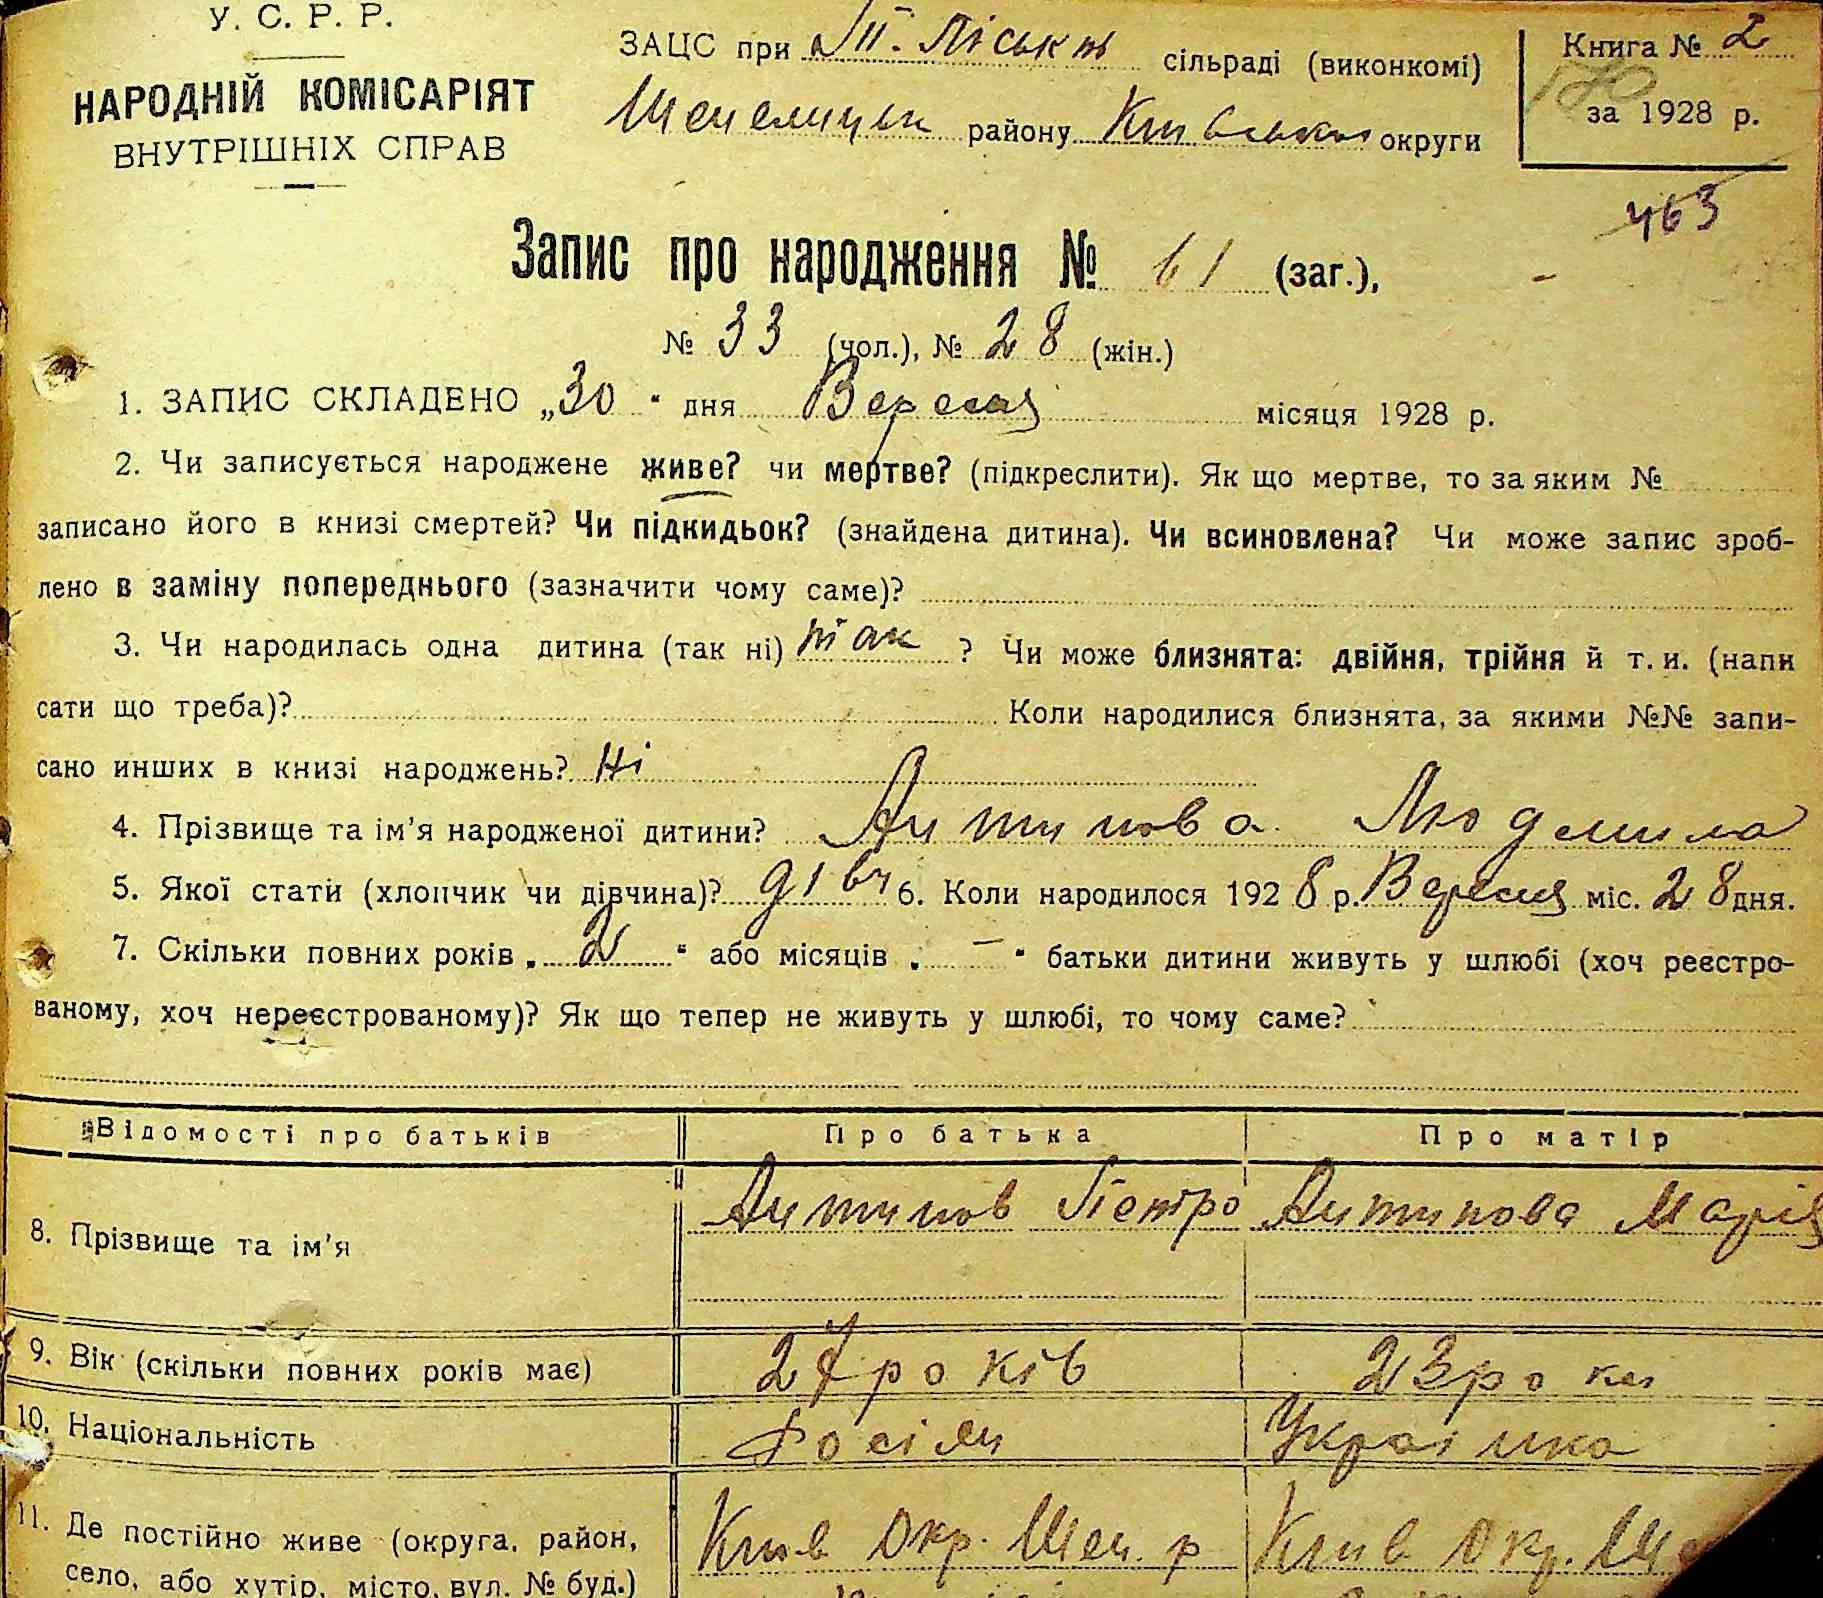 У. С. Р. Р.
НАРОДНІЙ КОМІСАРІЯТ
ВНУТРІШНІХ СПРАВ
ЗАЦС при сільраді (виконкомі)
району Київської округи
Книга № 2
за 1928 р.
463
Запис про народження № 61 (заг.),
№ 33 (чол.), № 28 (жін.)
1. ЗАПИС СКЛАДЕНО „30" дня Вересня місяця 1928 р.
2. Чи записується народжене живе? чи мертве? (підкреслити). Як що мертве, то за яким №
записано його в книзі смертей? Чи підкидьок? (знайдена дитина). Чи всиновлена? Чи може запис зроб-
лено в заміну попереднього (зазначити чому саме)?
3. Чи народилась одна дитина (так ні) так ? Чи може близнята: двійня, трійня й т. и. (напи
сати що треба)? Коли народилися близнята, за якими №№ запи-
сано инших в книзі народжень? Ні
4. Прізвище та ім'я народженої дитини? Антипова Людмила
5. Якої стати (хлопчик чи дівчина)? дівч 6. Коли народилося 1928 р. Вересня міс. 28 дня.
7. Скільки повних років „2" або місяців „—" батьки дитини живуть у шлюбі (хоч реєстро-
ваному, хоч нереєстрованому)? Як що тепер не живуть у шлюбі, то чому саме?
Відомості про батьків Про батька Про матір
8. Прізвище та ім'я Антипов Петро Антипова Марія
9. Вік (скільки повних років має) 27 років 23 роки
10. Національність Росіян Українка
11. Де постійно живе (округа, район, Київ Окр. Шеп. р Київ Окр. Ше
село, або хутір, місто, вул. № буд.)